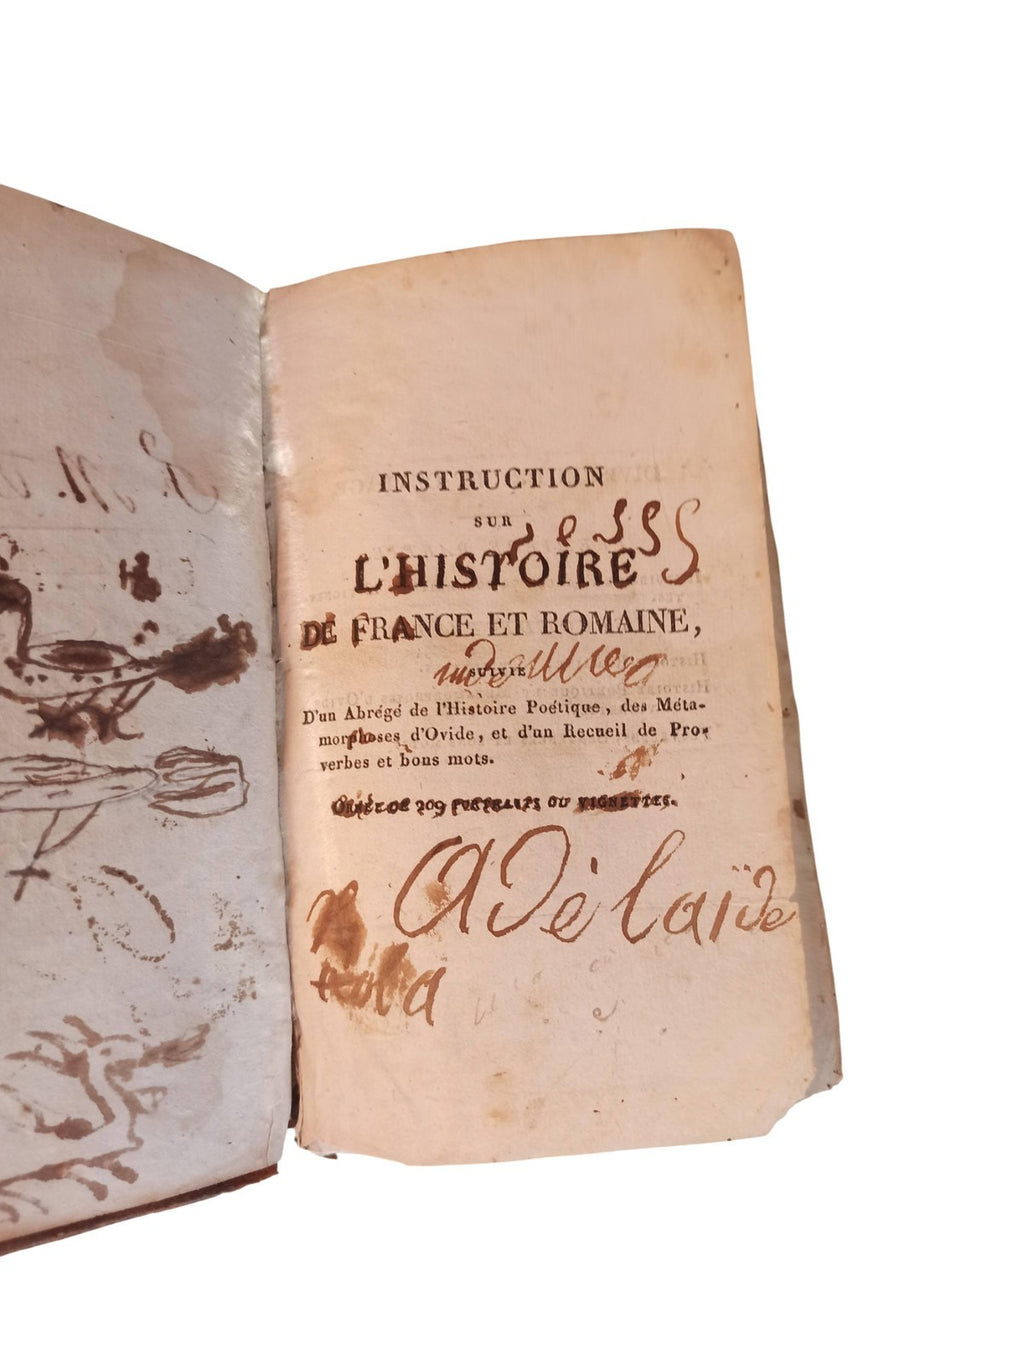 S. N.
INSTRUCTION
SUR
L'HISTOIRE
DE FRANCE ET ROMAINE,
SUIVIE
D'un Abrégé de l'Histoire Poétique, des Méta-
morphoses d'Ovide, et d'un Recueil de Pro-
verbes et bons mots.
ORNÉE DE 209 PORTRAITS OU VIGNETTES.
Adélaïde